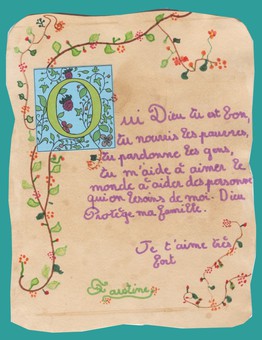 Oui Dieu tu est bon,
tu nourris les pauvres,
tu pardonne les gens,
tu m'aide à aimer le
monde à aider des personne
qui on besoins de moi. Dieu
Protège ma famille.
Je t'aime très
fort